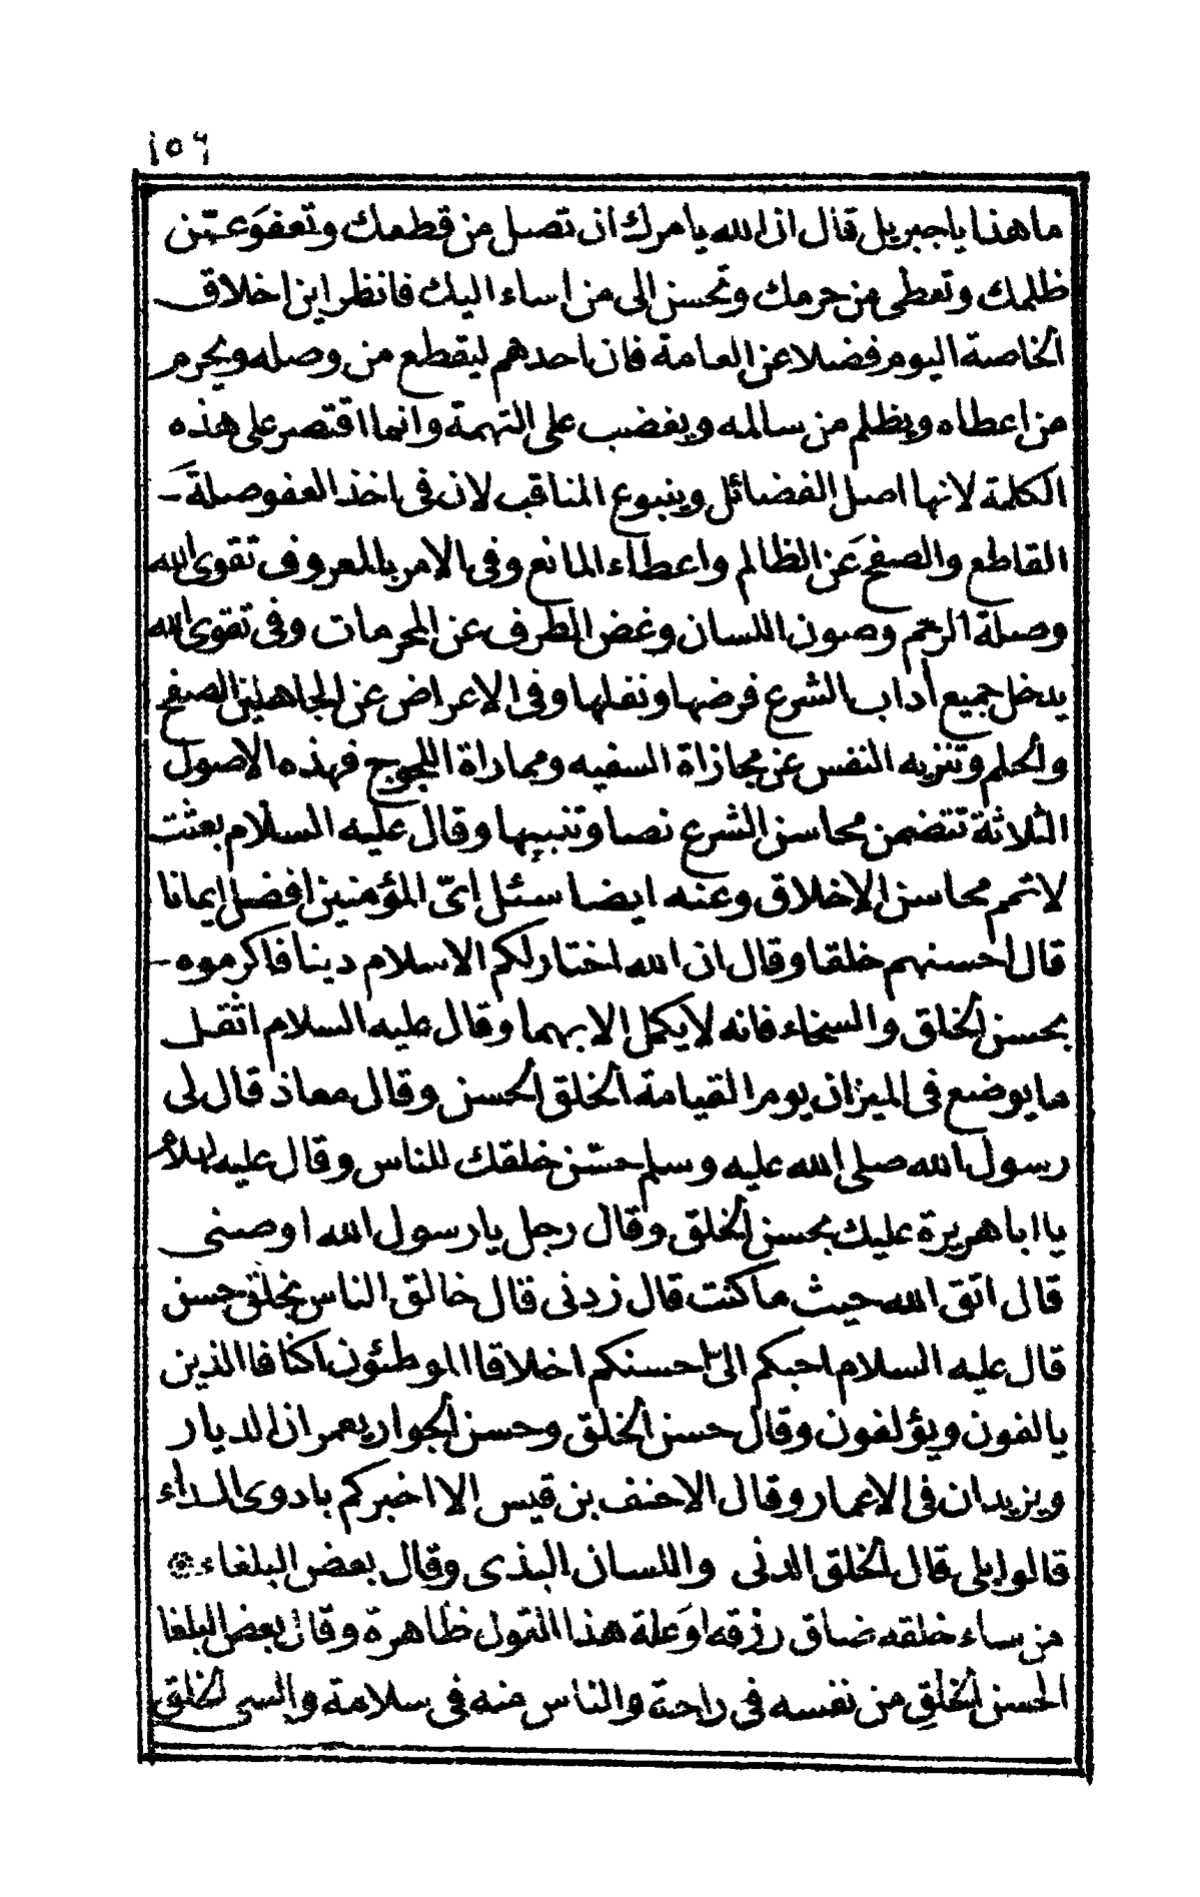 ١٥٦
ما هذا يا جبريل قال ان الله يامرك ان تصل من قطعك وتعفوَ عمّن
ظلمك وتعطى من حرمك وتحسن الى من اساء اليك فانظر اين اخلاق
الخاصة اليوم فضلا عن العامة فان احدهم ليقطع من وصله ويحرم
من اعطاه ويظلم من سالمه ويغضب على التهمة وانما اقتصر على هذه
الكلمة لانها اصل الفضائل وينبوع المناقب لان فى اخذ العفو صلةَ
القاطع والصفح عَن الظالم واعطاء المانع وفى الامر بالمعروف تقوى الله
وصلة الرحم وصون اللسان وغض الطرف عن المحرمات وفى تقوى الله
يدخل جميع أداب الشرع فرضها ونفلها وفى الاعراض عن الجاهلين الصفح
والحلم وتنزيه النفس عن مجازاة السفيه ومماراة اللجوج فهذه الاصول
الثلاثة تتضمن محاسن الشرع نصا وتنبيها وقال عليه السلام بعثت
لاتمم محاسن الاخلاق وعنه ايضا سئل اىّ المؤمنين افضل ايمانا
قال احسنهم خلقا وقال ان الله اختار لكم الاسلام دينا فاكرموه
بحسن الخلق والسخاء فانه لا يكمل الا بهما وقال عليه السلام اثقل
ما يوضع فى الميزان يوم القيامة الخلق الحسن وقال معاذ قال لى
رسول الله صلى الله عليه وسلم حسّن خلقك للناس وقال عليه السلام
يا ابا هريرة عليك بحسن الخلق وقال رجل يا رسول الله اوصنى
قال اتق الله حيث ما كنت قال زدنى قال خالق الناس بخلق حسن
قال عليه السلام احبكم الىّ احسنكم اخلاقا الموطئون اكنافا الذين
يالفون ويؤلفون وقال حسن الخلق وحسن الجوار يعمران الديار
ويزيدان فى الاعمار وقال الاحنف بن قيس الا اخبركم بادوى الداء
قالوا بلى قال الخلق الدنى واللسان البذى وقال بعض البلغاء
من ساء خلقه ضاق رزقه اوَعلة هذا القول ظاهرة وقال بعض البلغا
الحسن الخلقِ من نفسه فى راحة والناس منه فى سلامة والسى الخلق